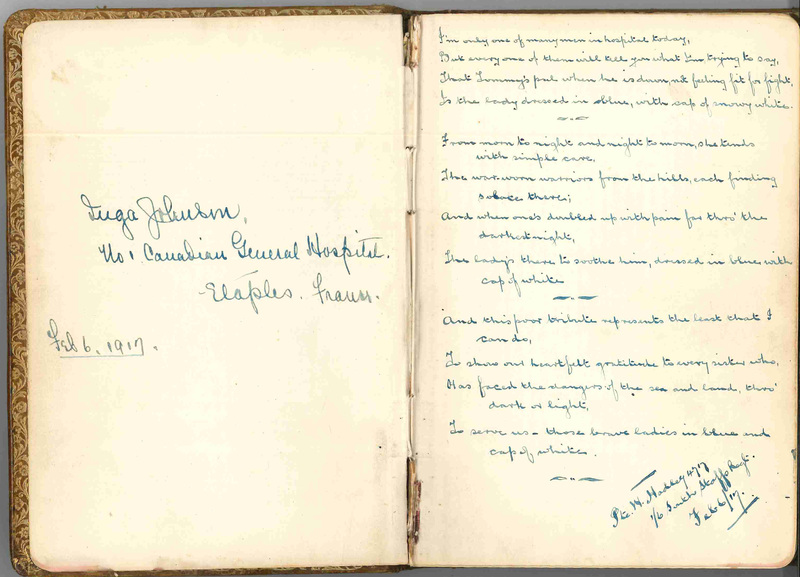 Inga Johnson,
No 1 Canadian General Hospital.
Etaples. France.
Feb 6, 1917.
I'm only one of many men in hospital today,
But every one of them will tell you what I'm trying to say,
That Tommy's pal when he is down, not feeling fit for fight,
Is the lady dressed in blue, with cap of snowy white.
From morn to night and night to morn, she tends
with simple care,
The war-worn warriors from the hills, each finding
solace there;
And when one's doubled up with pain far thro' the
darkest night,
The lady's there to soothe him, dressed in blue with
cap of white
And this poor tribute represents the least that I
can do,
To show our heartfelt gratitude to every sister who,
Has faced the dangers of the sea and land, thro'
dark or light,
To serve us - those brave ladies in blue and
cap of white.
Pte. H.
1/6 South Staffs Regt.
Feb 6/17.